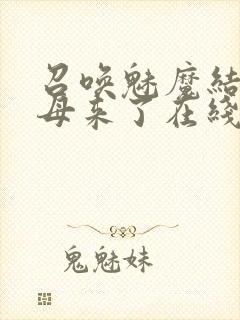 召唤魅魔结
母来了在线
鬼魅妹